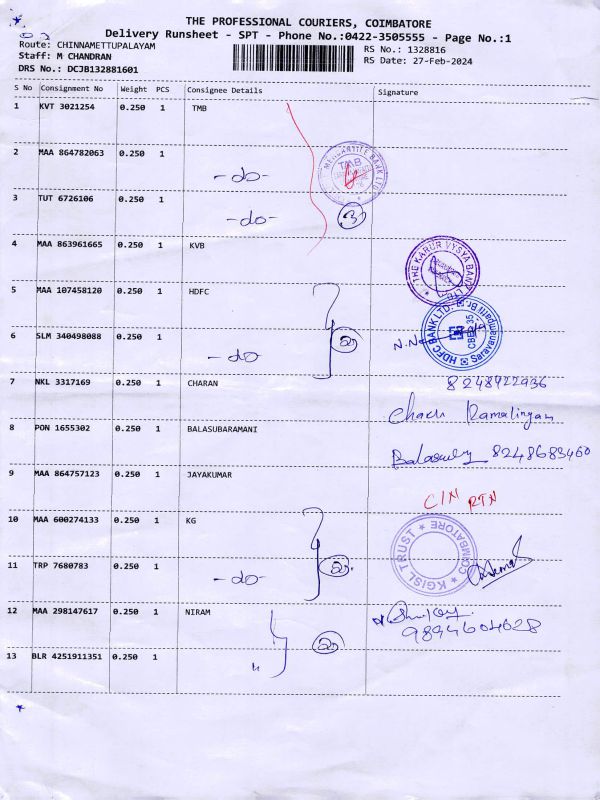 THE PROFESSIONAL COURIERS, COIMBATORE
Delivery Runsheet - SPT - Phone No.:0422-3505555 - Page No.:1
Route: CHINNAMETTUPALAYAM
RS No.: 1328816
Staff: M CHANDRAN
RS Date: 27-Feb-2024
DRS No.: DCJB132881601
S No Consignment No Weight PCS Consignee Details Signature
1 KVT 3021254 0.250 1 TMB
2 MAA 864782063 0.250 1 -do-
MERCANTILE BANK LTD
TMB
3 TUT 6726106 0.250 1 -do- 3
4 MAA 863961665 0.250 1 KVB
THE KARUR VYSYA BANK LTD
5 MAA 107458120 0.250 1 HDFC
HDFC BANK LTD
6 SLM 340498088 0.250 1 -do 2
7 NKL 3317169 0.250 1 CHARAN 8248922936
Ramalingam
8 PON 1655302 0.250 1 BALASUBARAMANI
8248683460
9 MAA 864757123 0.250 1 JAYAKUMAR
C/N RTN
10 MAA 600274133 0.250 1 KG
KGISL TRUST COIMBATORE
11 TRP 7680783 0.250 1 -do- 2
12 MAA 298147617 0.250 1 NIRAM
9894604028
13 BLR 4251911351 0.250 1 " 2